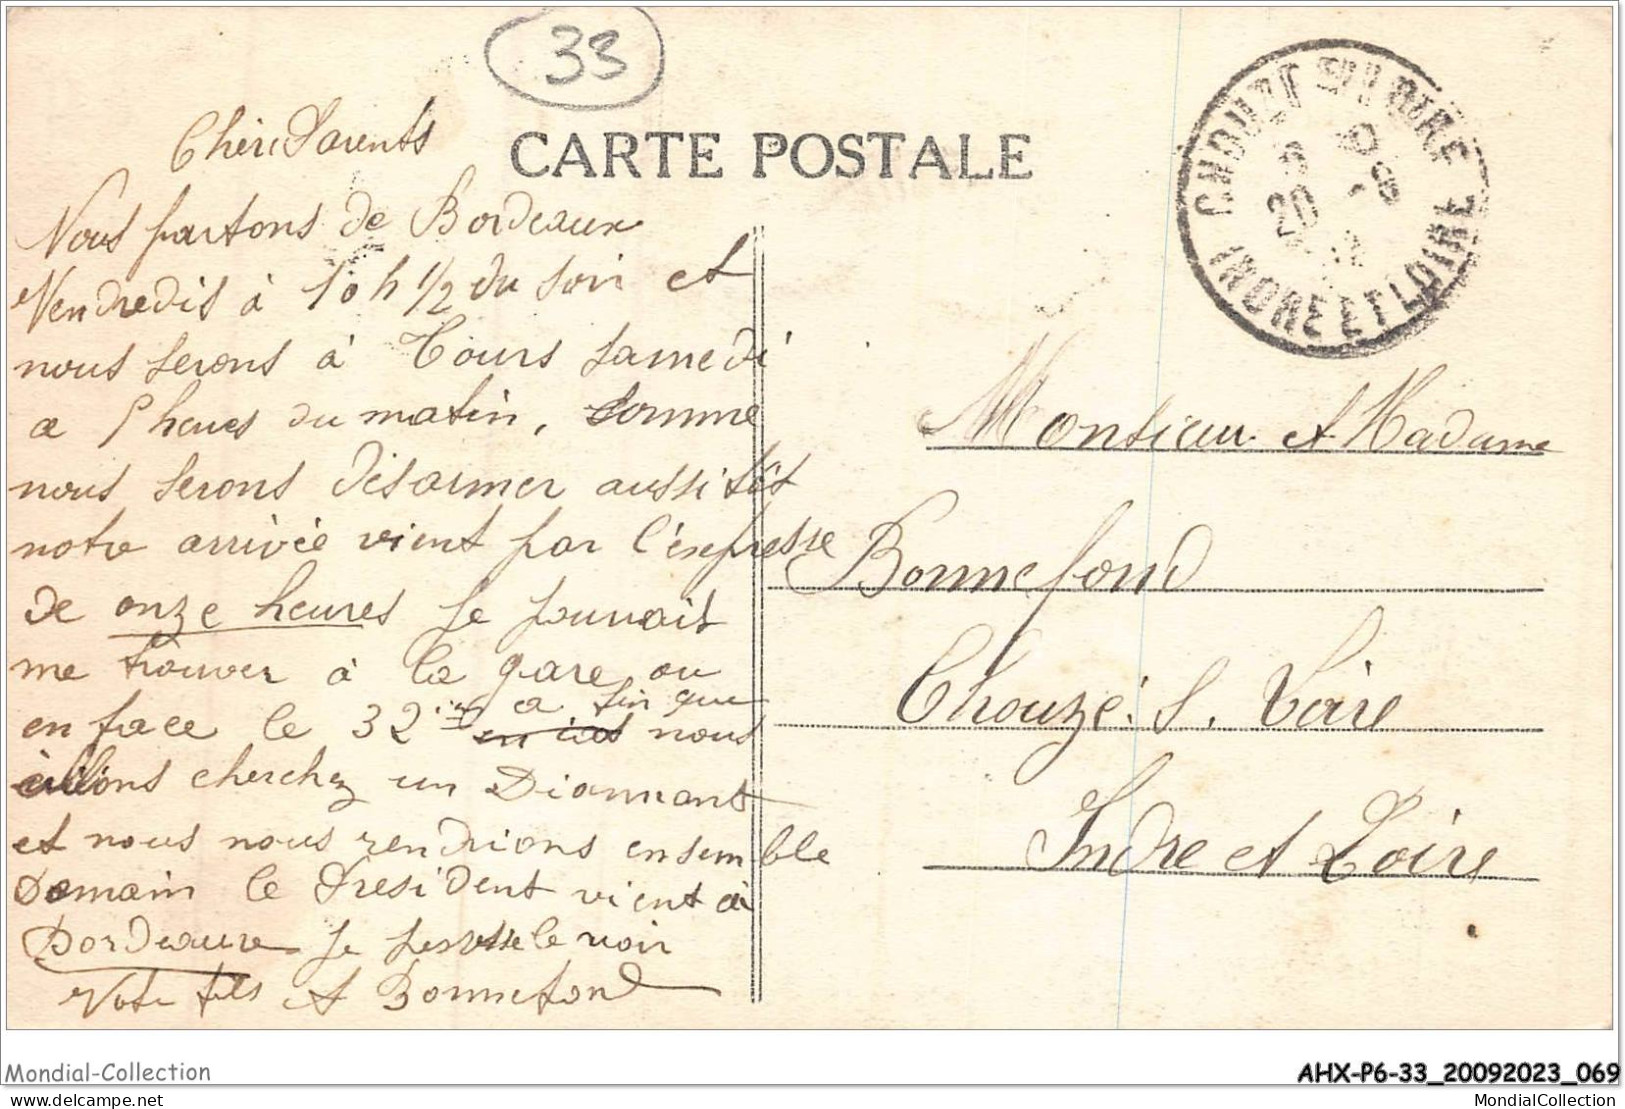 33
CARTE POSTALE
CHOUZE SUR LOIRE
INDRE ET LOIRE
20
Chers Parents
Nous partons de Bordeaux
Vendredis à 10 h 1/2 du soir et
nous serons à Tours samedi
a 5 heures du matin, comme
nous serons désarmer aussitôt
notre arrivée vient par l'expresse
de onze heures je pourrait
me trouver à la gare ou
en face le 32 a fin que
nous
allions cherchez un Dionnant
et nous nous rendrions ensemble
Demain le President vient à
Bordeaux je le voir
Votre fils A Bonnefond
Monsieur et Madame
Bonnefond
Chouzé. s. Loire
Indre et Loire
Mondial-Collection
AHX-P6-33_20092023_069
delcampe.net
MondialCollection